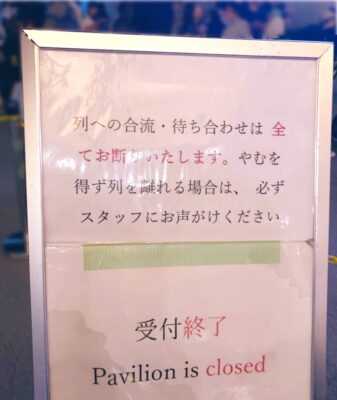 列への合流・待ち合わせは 全
てお断りいたします。やむを
得ず列を離れる場合は、必ず
スタッフにお声がけください
受付終了
Pavilion is closed